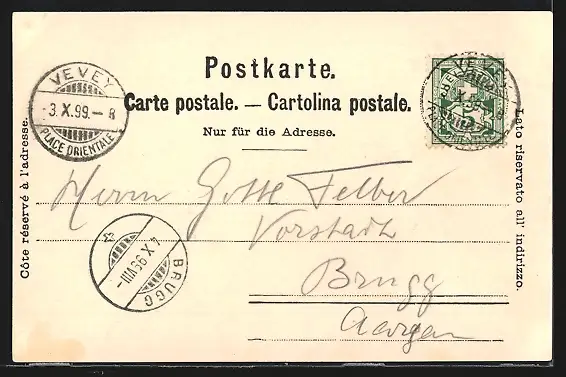 Postkarte.
Carte postale. — Cartolina postale.
Nur für die Adresse.
VEVEY
-3.X.99.-8
PLACE ORIENTALE
VEVEY
5
Côte réservé à l'adresse.
Lato riservato all' indirizzo.
Herrn Gottl Felber
Vorstadt
Brugg
Aargau
BRUGG
4.X.99.VIII-